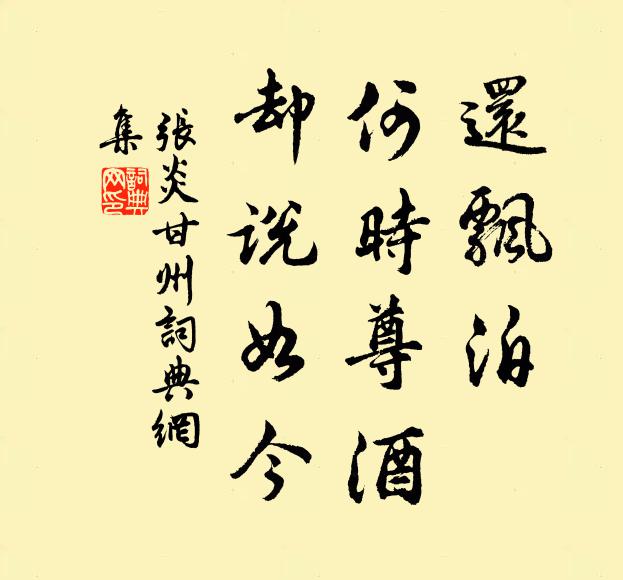 還飄泊
何時尊酒
却說如今
張炎甘州詞典網
集
詞典網印